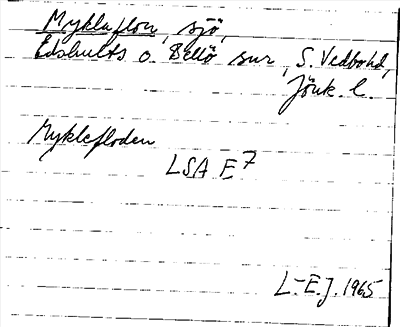 Mykluflon, sjö,
Edshults o. Bellö snr, S. Vedbohd,
Jönk. l.
Myklefloden
LSA E7
L-E.J. 1965